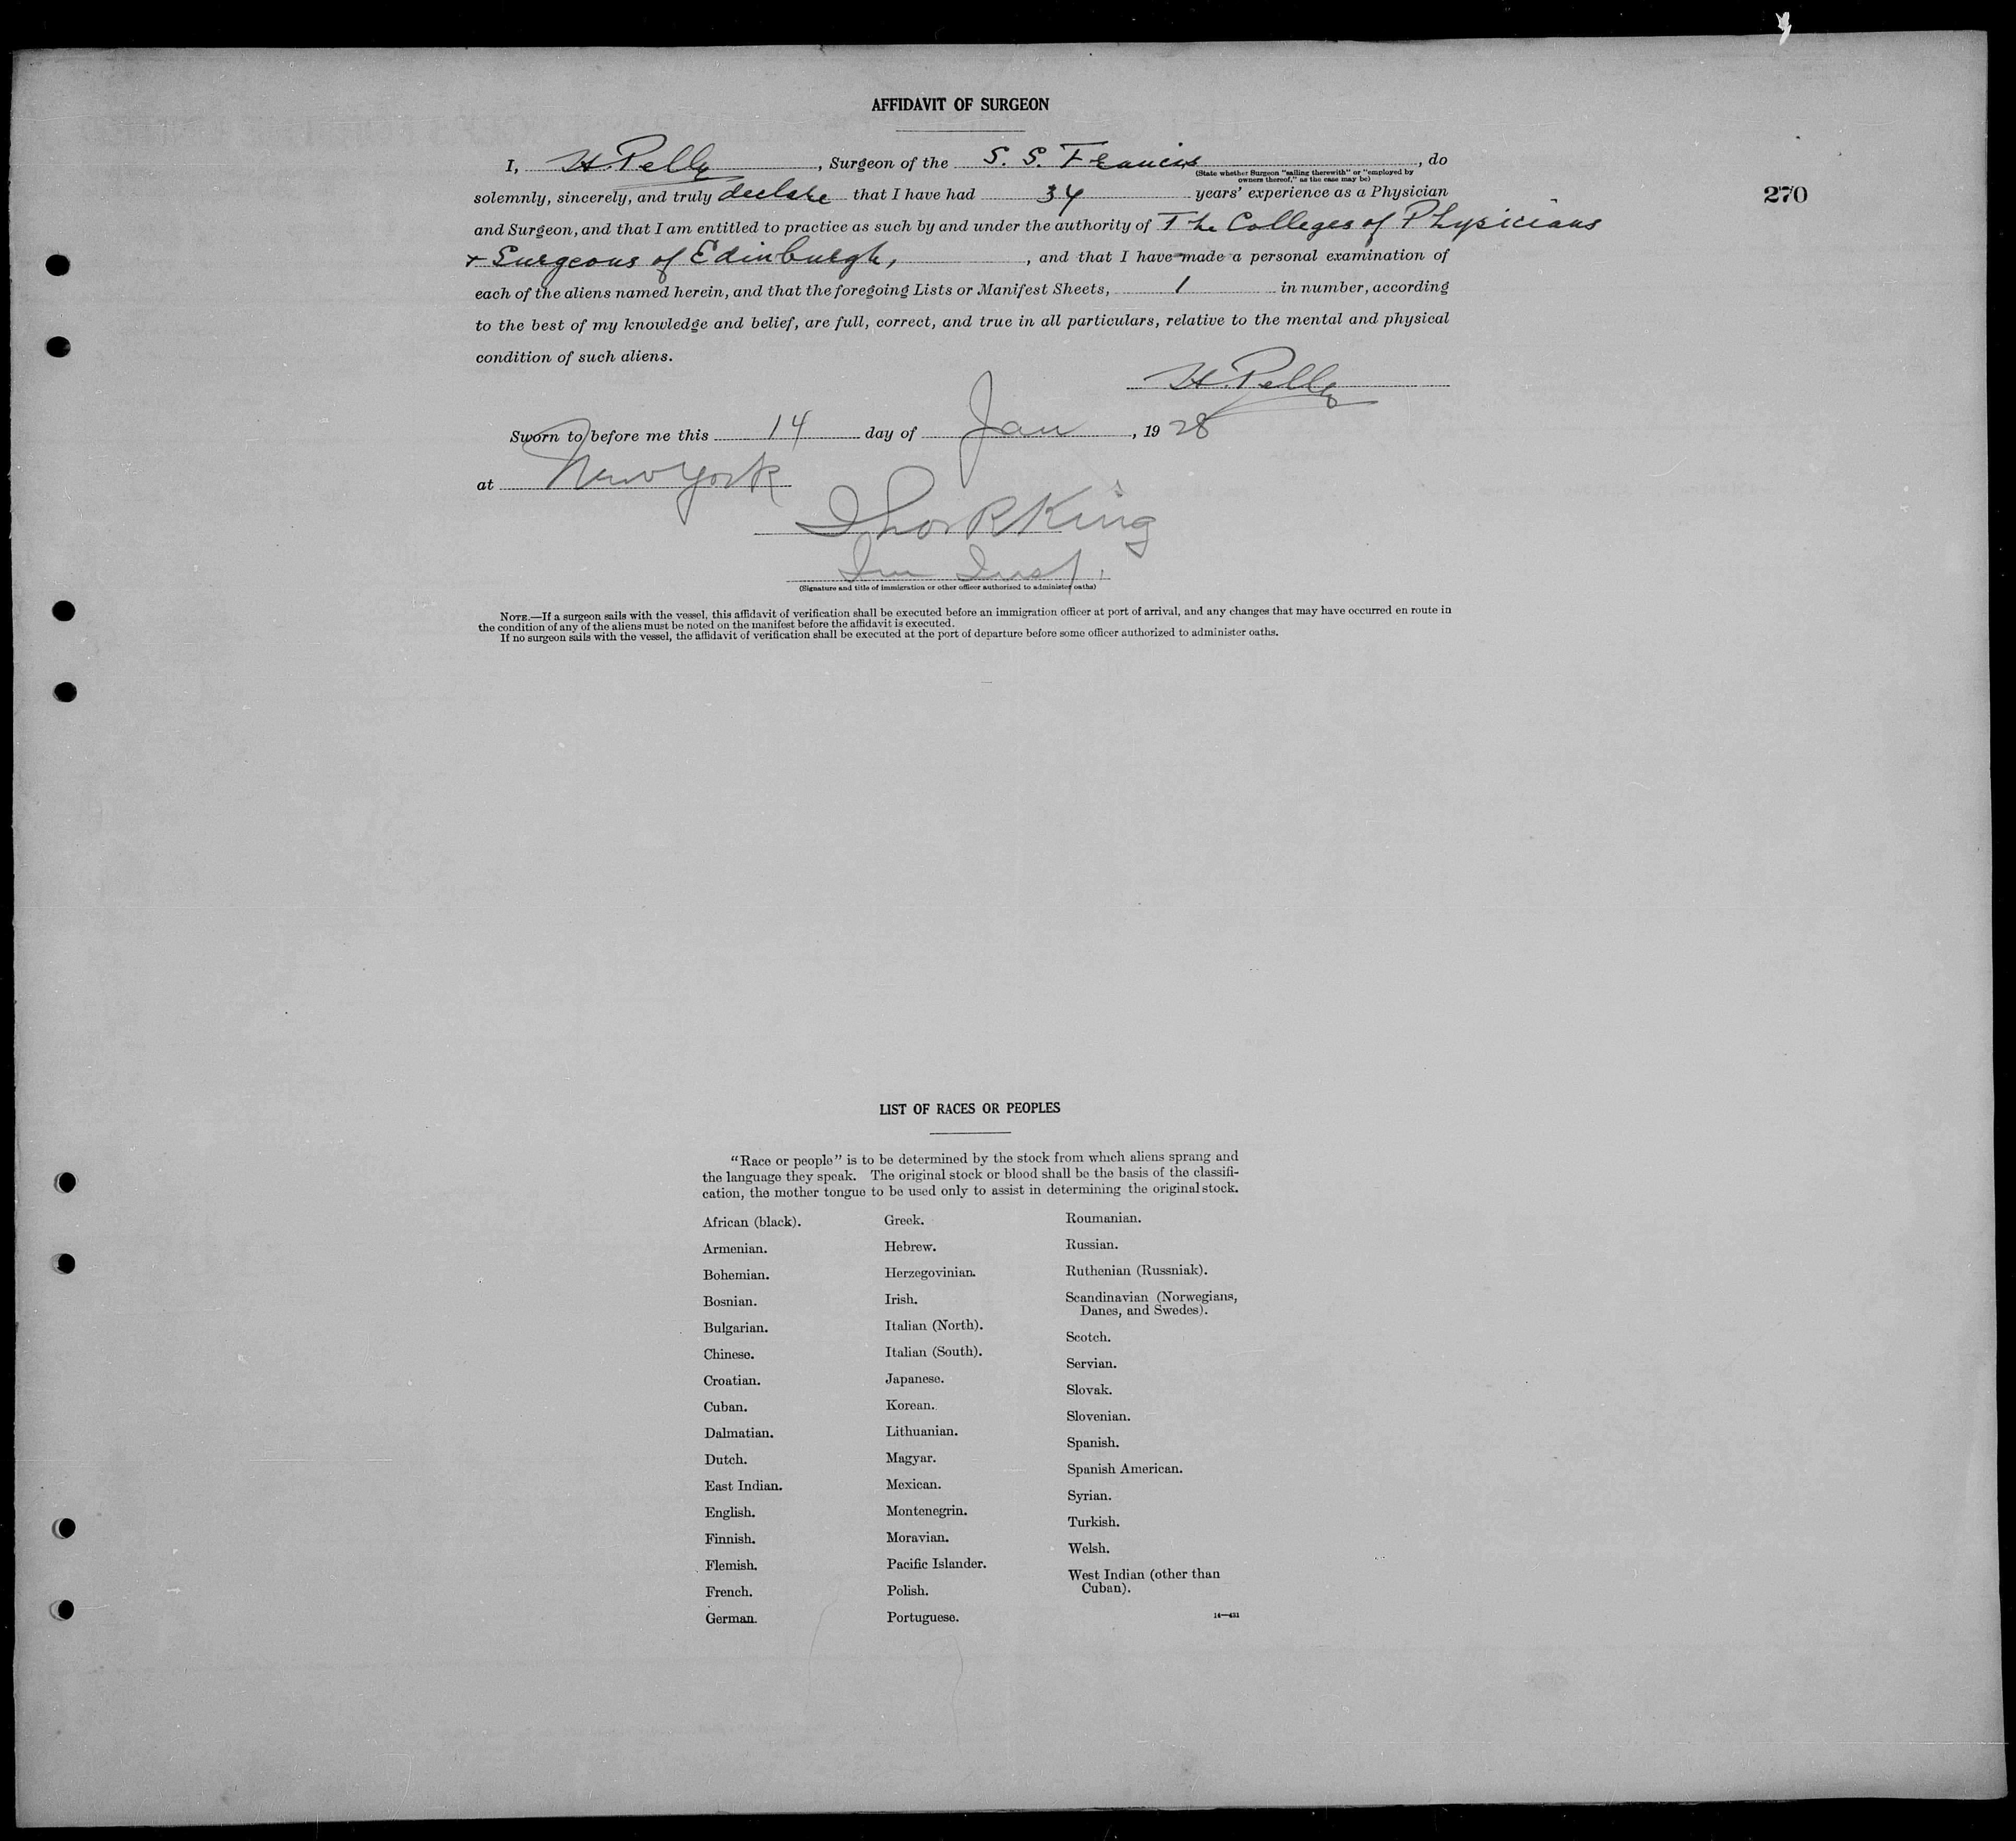 AFFIDAVIT OF SURGEON
I, H. Pelly, Surgeon of the S. S. Francis, do
(State whether Surgeon "sailing therewith" or "employed by
owners thereof," as the case may be)
solemnly, sincerely, and truly declare that I have had 34 years' experience as a Physician
270
and Surgeon, and that I am entitled to practice as such by and under the authority of The Colleges of Physicians
+ Surgeons of Edinburgh, , and that I have made a personal examination of
each of the aliens named herein, and that the foregoing Lists or Manifest Sheets, 1 in number, according
to the best of my knowledge and belief, are full, correct, and true in all particulars, relative to the mental and physical
condition of such aliens.
H. Pelly
Sworn to before me this 14 day of Jan, 1928
at New York
Thos R King
Im Insp.
(Signature and title of immigration or other officer authorized to administer oaths)
NOTE.—If a surgeon sails with the vessel, this affidavit of verification shall be executed before an immigration officer at port of arrival, and any changes that may have occurred en route in
the condition of any of the aliens must be noted on the manifest before the affidavit is executed.
If no surgeon sails with the vessel, the affidavit of verification shall be executed at the port of departure before some officer authorized to administer oaths.
LIST OF RACES OR PEOPLES
"Race or people" is to be determined by the stock from which aliens sprang and
the language they speak. The original stock or blood shall be the basis of the classifi-
cation, the mother tongue to be used only to assist in determining the original stock.
African (black).
Armenian.
Bohemian.
Bosnian.
Bulgarian.
Chinese.
Croatian.
Cuban.
Dalmatian.
Dutch.
East Indian.
English.
Finnish.
Flemish.
French.
German.
Greek.
Hebrew.
Herzegovinian.
Irish.
Italian (North).
Italian (South).
Japanese.
Korean.
Lithuanian.
Magyar.
Mexican.
Montenegrin.
Moravian.
Pacific Islander.
Polish.
Portuguese.
Roumanian.
Russian.
Ruthenian (Russniak).
Scandinavian (Norwegians,
Danes, and Swedes).
Scotch.
Servian.
Slovak.
Slovenian.
Spanish.
Spanish American.
Syrian.
Turkish.
Welsh.
West Indian (other than
Cuban).
14—431